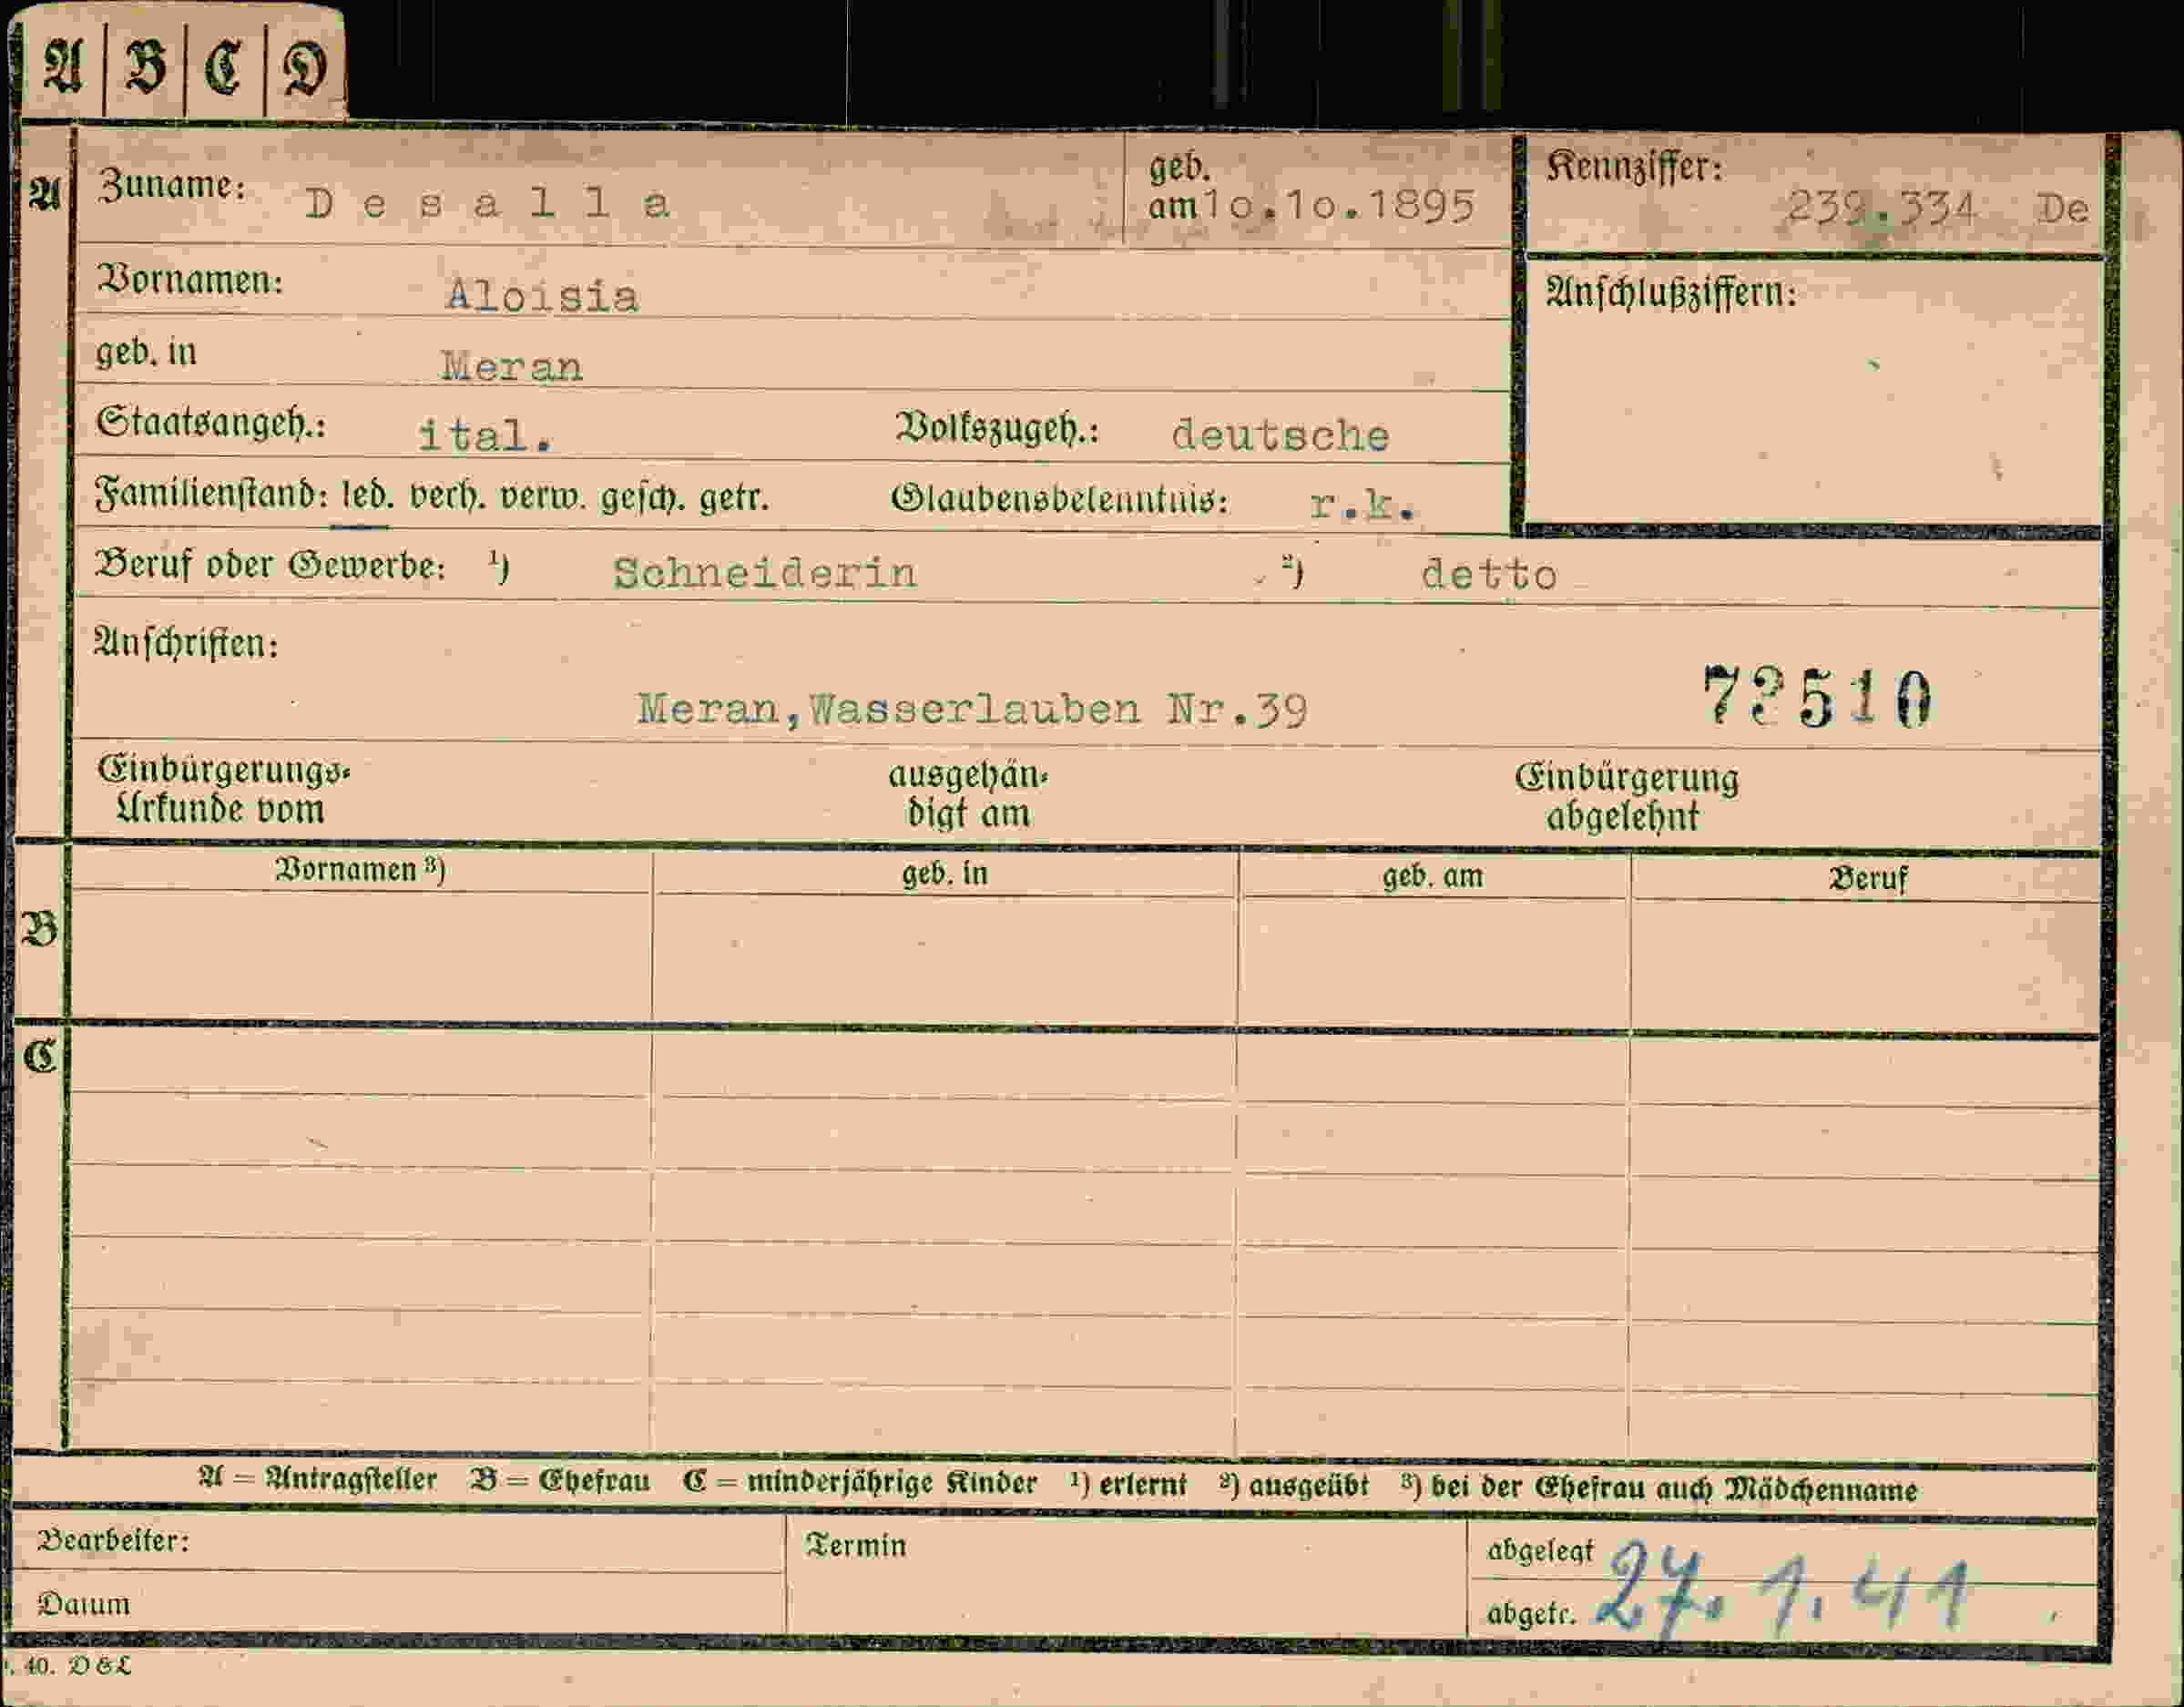 A | B | C | D
A Zuname: Desalla geb. am 10.10.1895 Kennziffer: 239.334 De
Vornamen: Aloisia Anschlußziffern:
geb. in Meran
Staatsangeh.: ital. Volkszugeh.: deutsche
Familienstand: led. verh. verw. gesch. getr. Glaubensbekenntnis: r.k.
Beruf oder Gewerbe: ¹) Schneiderin ²) detto
Anschriften:
Meran,Wasserlauben Nr.39
Einbürgerungs- ausgehän- Einbürgerung
Urkunde vom digt am abgelehnt
Vornamen ³) geb. in geb. am Beruf
B
C
A = Antragsteller B = Ehefrau C = minderjährige Kinder ¹) erlernt ²) ausgeübt ³) bei der Ehefrau auch Mädchenname
Bearbeiter: Termin abgelegt 27.1.41
Datum abgetr.
40. D&L